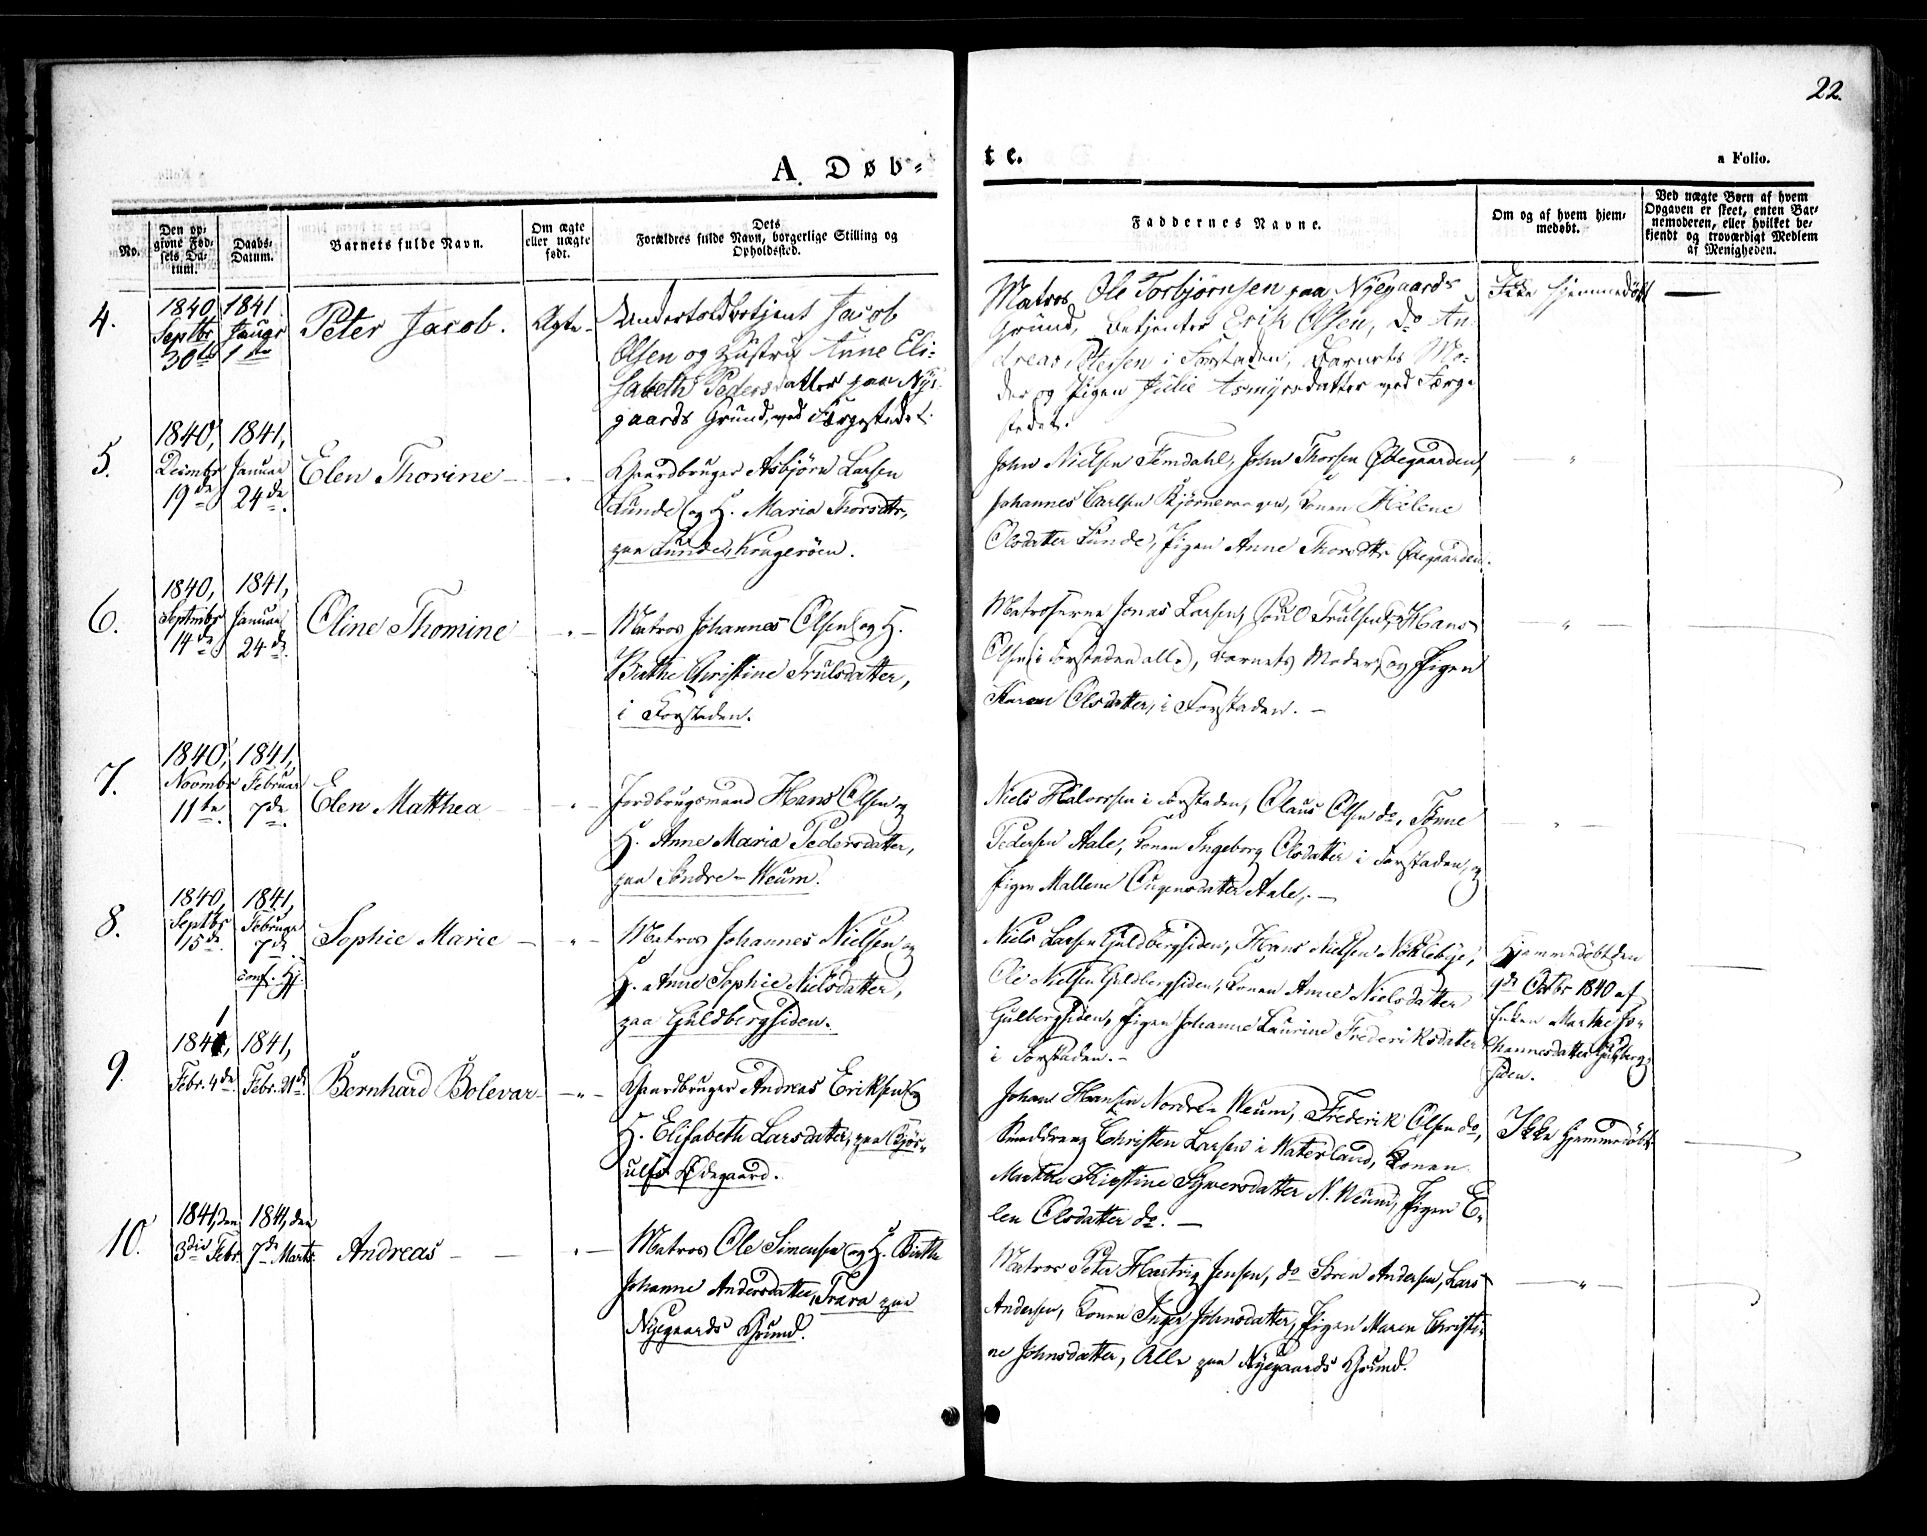 22.
A. Døb-
te.
a Folio.
No.
Den op-
givne Fød-
sels Da-
tum.
Daabs-
Datum.
Barnets fulde Navn.
Om ægte
eller uægte
født.
Dets
Forældres fulde Navn, borgerlige Stilling og
Opholdssted.
Faddernes Navne.
Om og af hvem hjem-
medøbt.
Ved uægte Børn af hvem
Opgaven er skeet, enten Bar-
nemoderen, eller hvilket be-
kjendt og troværdigt Medlem
af Menigheden.
4.
1840
Septbr
30te
1841
1ste
Peter Jacob.
Ægte
Undertoldbetjent Jacob
Olsen og Hustru Anne Eli-
sabeth Pedersdatter paa Nye-
gaards Grund, ved Færgestedet.
Matros Ole Torbjørnsen paa Nyegaards
Grund, Betjenter Erik Olsen, do An-
dreas Olsen i Forstaden, Barnets Mo-
der og Pigen Julie Asmyrsdatter ved Færge-
stedet.
Ikke hjemmedøbt
5.
1840,
Decmbr
19de
1841,
Januar
24de
Elen Thorine
Gaardbruger Asbjørn Larsen
Lunde og H. Maria Thorsdtr,
paa Lunde, Kragerøen.
John Nielsen Femdahl, John Thorsen Ødegaarden,
Johannes Carlsen Kjørnevangen, Konen Helene
Olsdatter Lunde, Pigen Anne Thorsdtr Ødegaarden.
6.
1840,
Septmbr
14de
1841,
Januar
24de
Oline Thomine
Matros Johannes Olsen og H.
Birthe Christine Trulsdatter,
i Forstaden.
Matroserne Jonas Larsen, Poul Trulsen, Hans
Olsen (i Forstaden alle), Barnets Moder, og Pigen
Karen Olsdatter, i Forstaden.
7.
1840,
Novmbr
11te
1841,
Februar
7de
Elen Matthea
Jordbrugsmand Hans Olsen og
H. Anne Maria Pedersdatter,
paa Søndre-Weum.
Niels Halvorsen i Forstaden, Claus Olsen do, Tønne
Pedersen Aale, Konen Ingeborg Olsdatter i Forstaden, og
Pigen Mallene Eugensdatter Aale,
8.
1840,
Septbr
15de
1841,
Februar
7de
conf. Hj.
Sophie Marie
Matros Johannes Nielsen og
H. Anne Sophie Nielsdatter,
paa Guldbergsiden.
Niels Larsen Guldbergsiden, Hans Nielsen Nøklebye,
Ole Nielsen Guldbergsiden, Konen Anne Nielsdatter
Gulbergsiden, Pigen Johanne Laurine Frederiksdatter
i Forstaden.
Hjemmedøbt den
1de Octbr 1840 af
Enken Marthe Jo-
hannesdatter Guldberg-
siden.
9.
1841,
Febr. 4de
1841,
Febr. 21de
Bernhard Bolevar
Gaardbruger Andreas Eriksen og
H. Elisabeth Larsdatter, paa Gjør-
ulfs Ødegaard.
Johans Hansen Nordre-Weum, Frederik Olsen do,
Christen Larsen i Waterland, Konen
Marthe Kirstine Sywersdatter N. Weum, Pigen E-
len Olsdatter do.
Ikke hjemmedøbt
10.
1841, den
3die Febr.
1841, den
7de Marts
Andreas
Matros Ole Simensen og H. Birthe
Johanne Andersdatter, Trara paa
Nyegaards Grund.
Matros Peter Hartvig Jensen, do Søren Andersen, Lars
Andersen, Konen Inger Johnsdatter, Pigen Maren Christi-
ne Johnsdatter, Alle paa Nyegaards Grund.